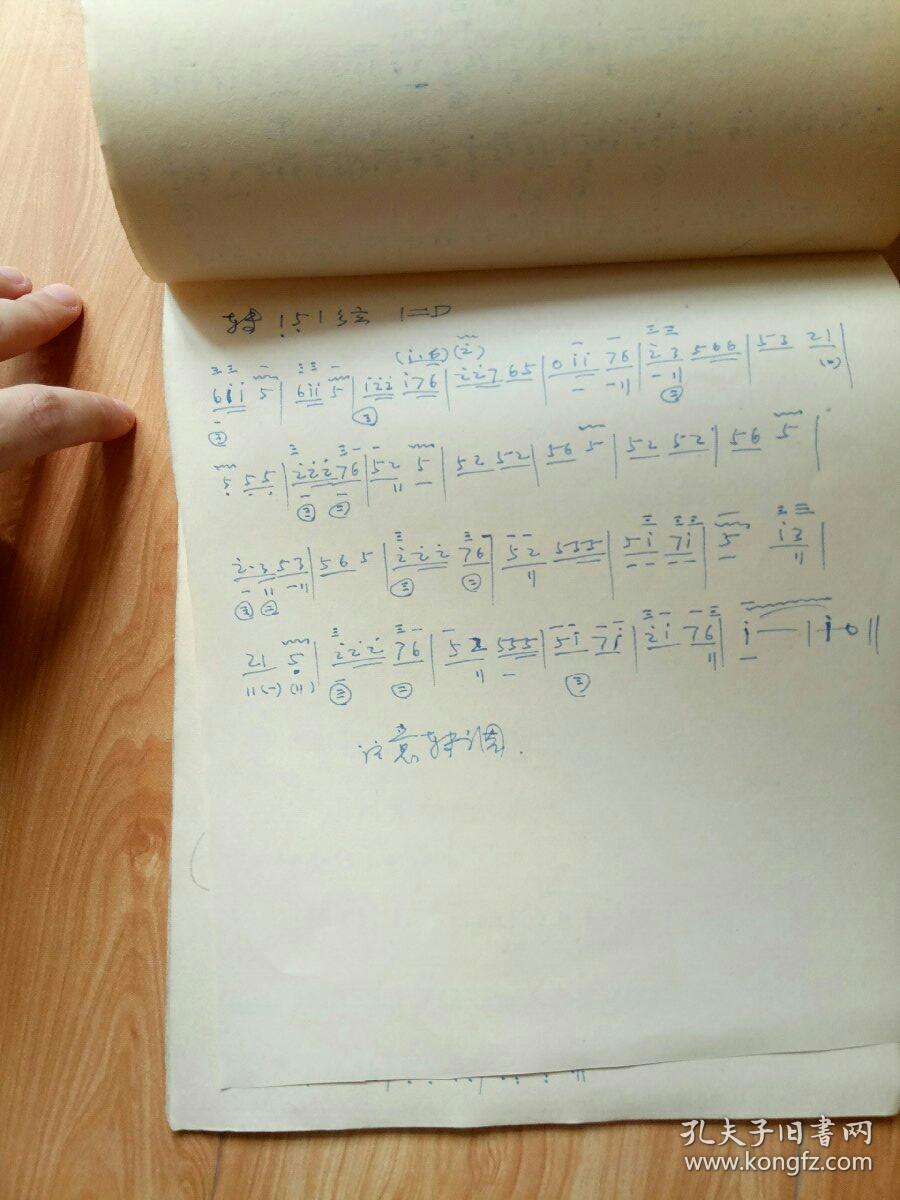 转 1̣ 5̣ 1 弦 1=D
(i·6) (2̇)
6i i 5 | 6i i 5 | i 2̇ 2̇ i 7 6 | 2̇ 2̇ 7 6 5 | 0 i i 7 6 | 2̇ 3 5 6 6 | 5 3 2 1 |
5̣ 5̣ 5̣ | 2̇ 2̇ 2̇ 7 6 | 5 2 5 | 5 2 5 2 | 5 6 5 | 5 2 5 2 | 5 6 5 |
2·3 5 3 | 5 6 5 | 2̇ 2̇ 2̇ 7 6 | 5 2 5 5 5 | 5 i 7 i | 5 i 3 |
2 1 5̣ | 2̇ 2̇ 2̇ 7 6 | 5 2 5 5 5 | 5 i 7 i | 2̇ i 7 6 | i — | i 0 ‖
注意转调.
孔夫子旧書网
www.kongfz.com